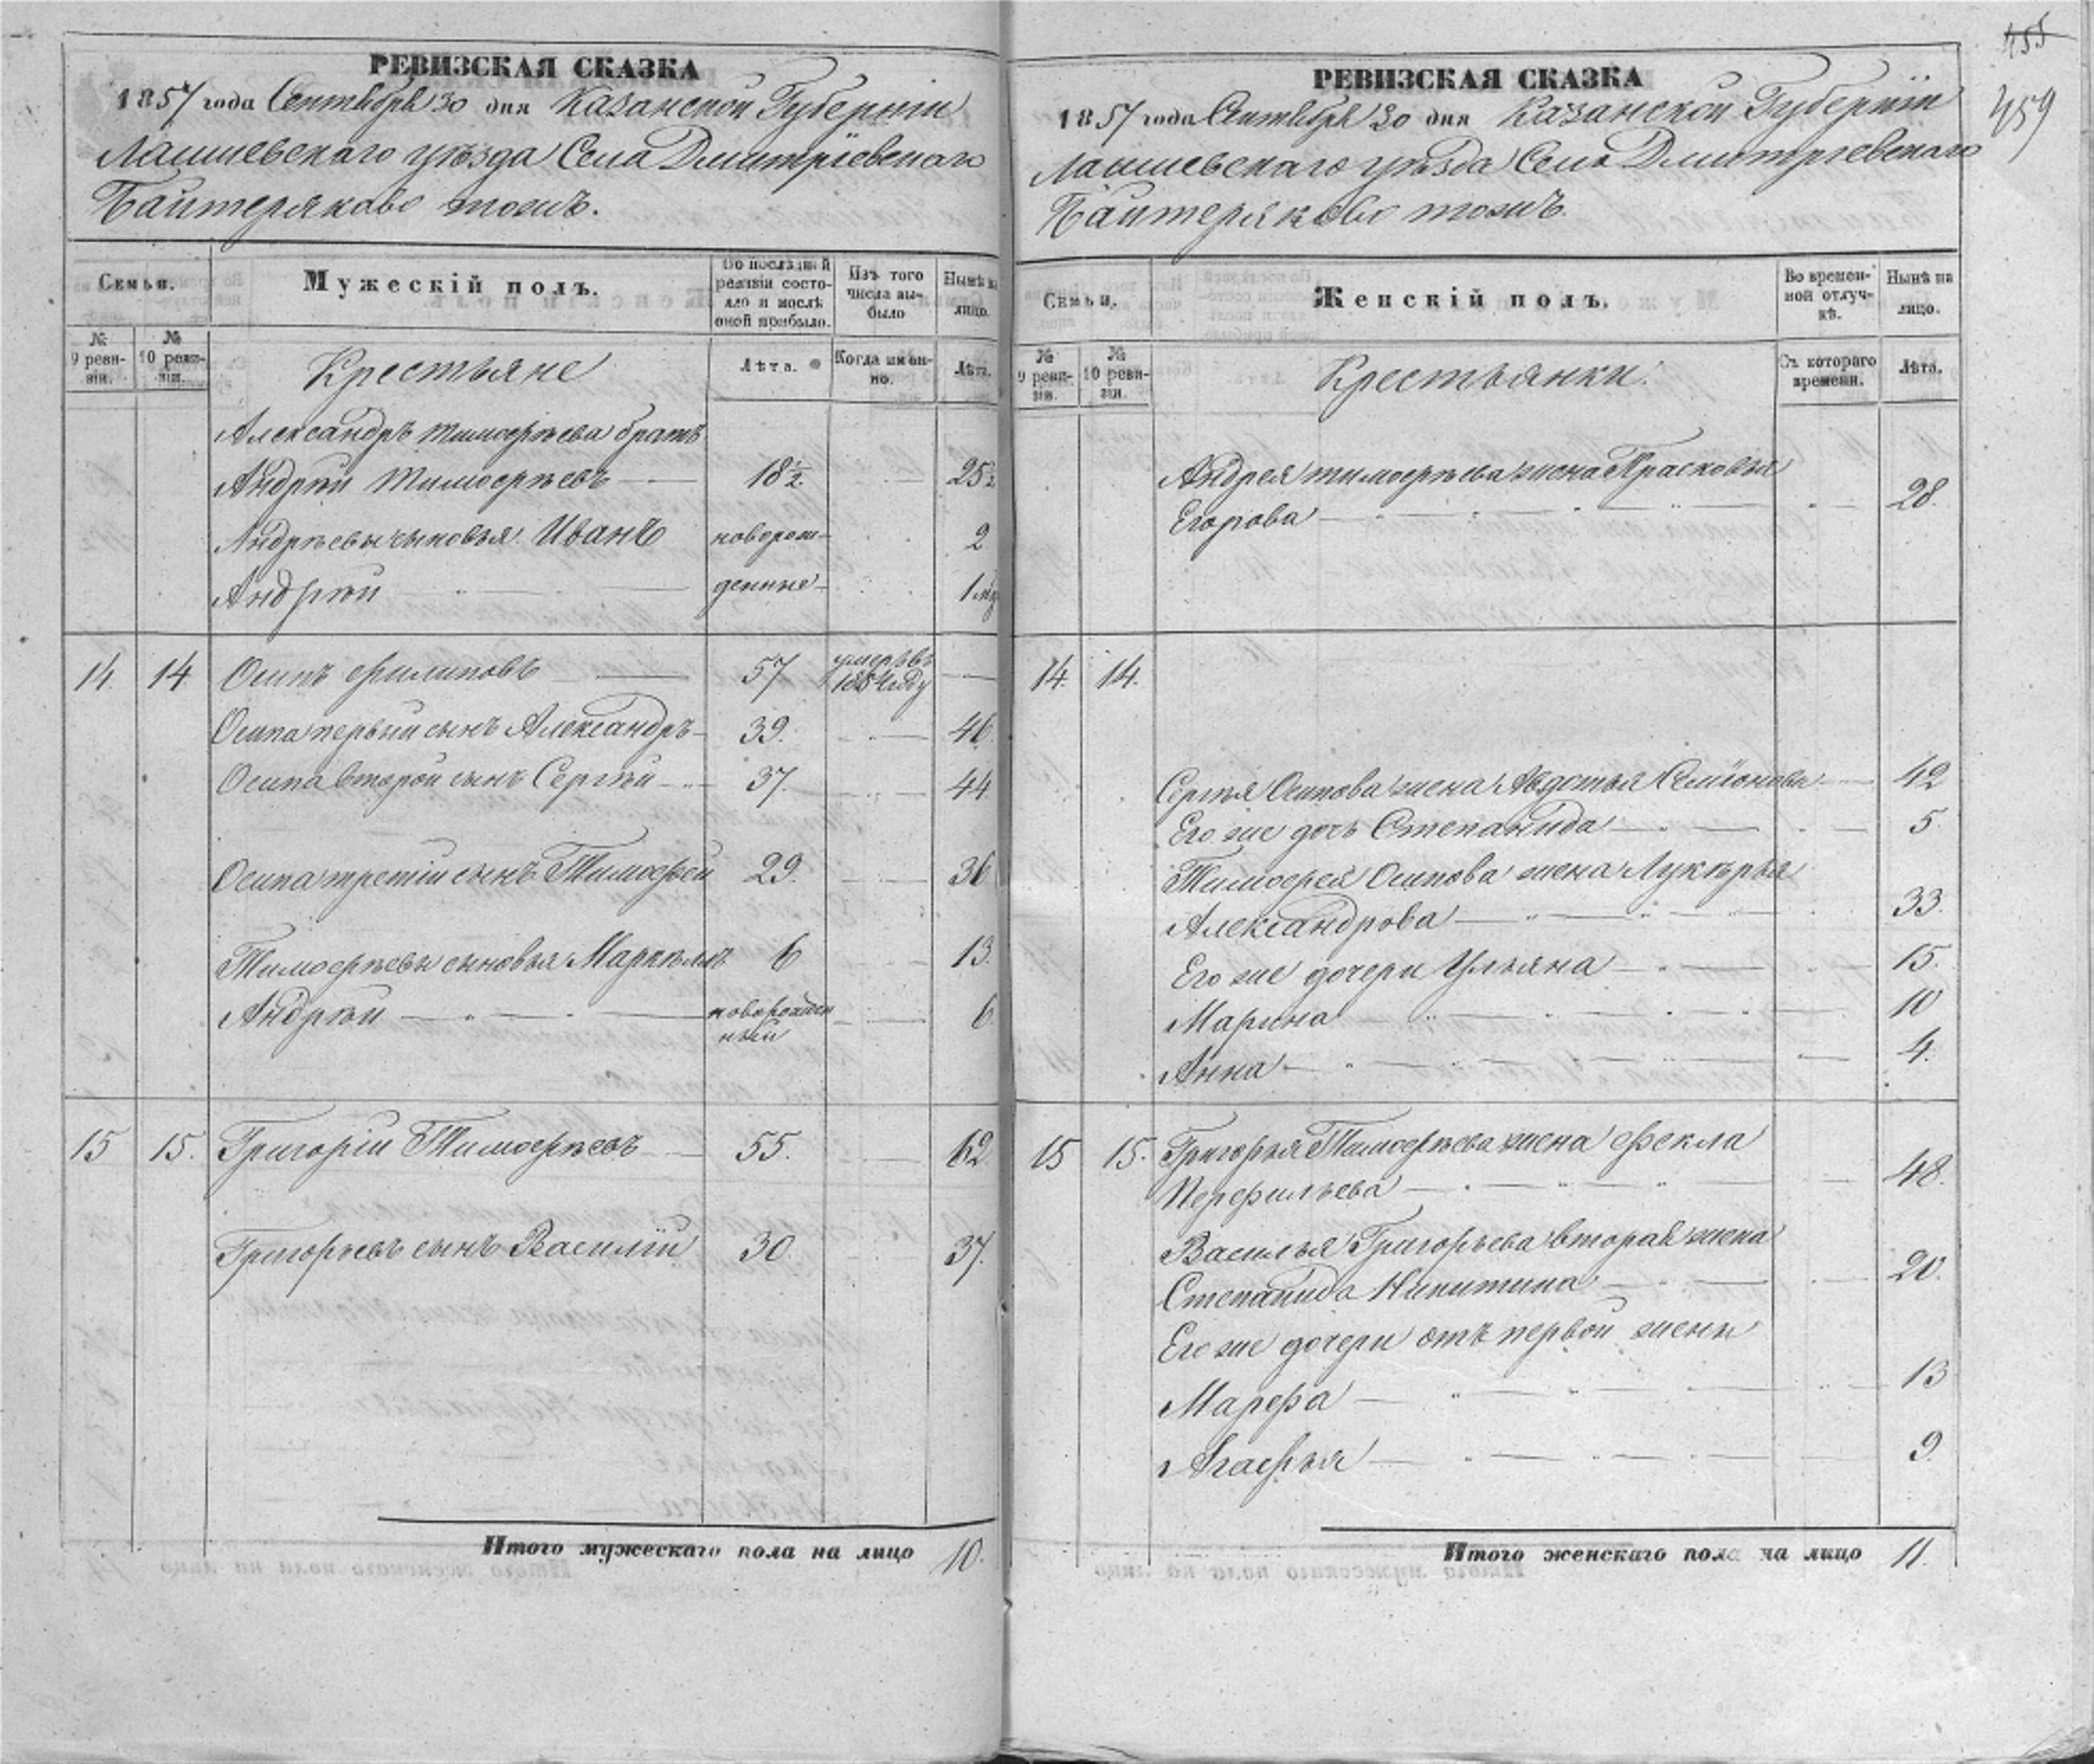 РЕВИЗСКАЯ СКАЗКА
1857 года Сентября 30 дня Казанской Губерніи
Лаишевскаго уѣзда Села Дмитріевскаго
Байтеряково тожъ.
Семьи.
Мужескій полъ.
По послѣдней ревизіи состояло и послѣ оной прибыло.
Изъ того числа выбыло
Нынѣ на лицо.
№ 9 ревизіи.
№ 10 ревизіи.
Крестьяне
Лѣта.
Когда именно.
Лѣта.
Александръ Тимофѣева братъ
Андрей Тимофѣевъ 18½ 25½
Андрѣевы сыновья Иванъ новорож- 2
Андрѣй денные 1
14. 14 Осипъ Филиповъ 57 умеръ въ 1854 году
Осипа первый сынъ Александръ 39. 46.
Осипа второй сынъ Сергѣй 37. 44
Осипа третій сынъ Тимофей 29. 36
Тимофѣевы сыновья Маркѣлъ 6 13.
Андрѣй новорожден- 6
ный
15 15. Григорій Тимофѣевъ 55. 62.
Григорьевъ сынъ Василій 30. 37.
Итого мужескаго пола на лицо 10.
455
459
РЕВИЗСКАЯ СКАЗКА
1857 года Сентября 30 дня Казанской Губерніи
Лаишевскаго уѣзда Села Дмитріевскаго
Байтеряково тожъ.
Семьи.
Женскій полъ.
Во временной отлучкѣ.
Нынѣ на лицо.
№ 9 ревизіи.
№ 10 ревизіи.
Крестьянки.
Съ котораго времени.
Лѣта.
Андрея Тимофѣева жена Прасковья
Егорова 28.
14. 14.
Сергѣя Осипова жена Авдотья Семіонова 42
Его же дочь Степанида 5.
Тимофея Осипова жена Лукѣрья
Александрова 33.
Его же дочери Ульяна 15.
Марина 10
Анна 4.
15 15. Григорья Тимофѣева жена Фекла
Перфильева 48.
Василья Григорьева вторая жена
Степанида Никитина 20.
Его же дочери отъ первой жены
Марфа 13
Агафья 9
Итого женскаго пола на лицо 11.